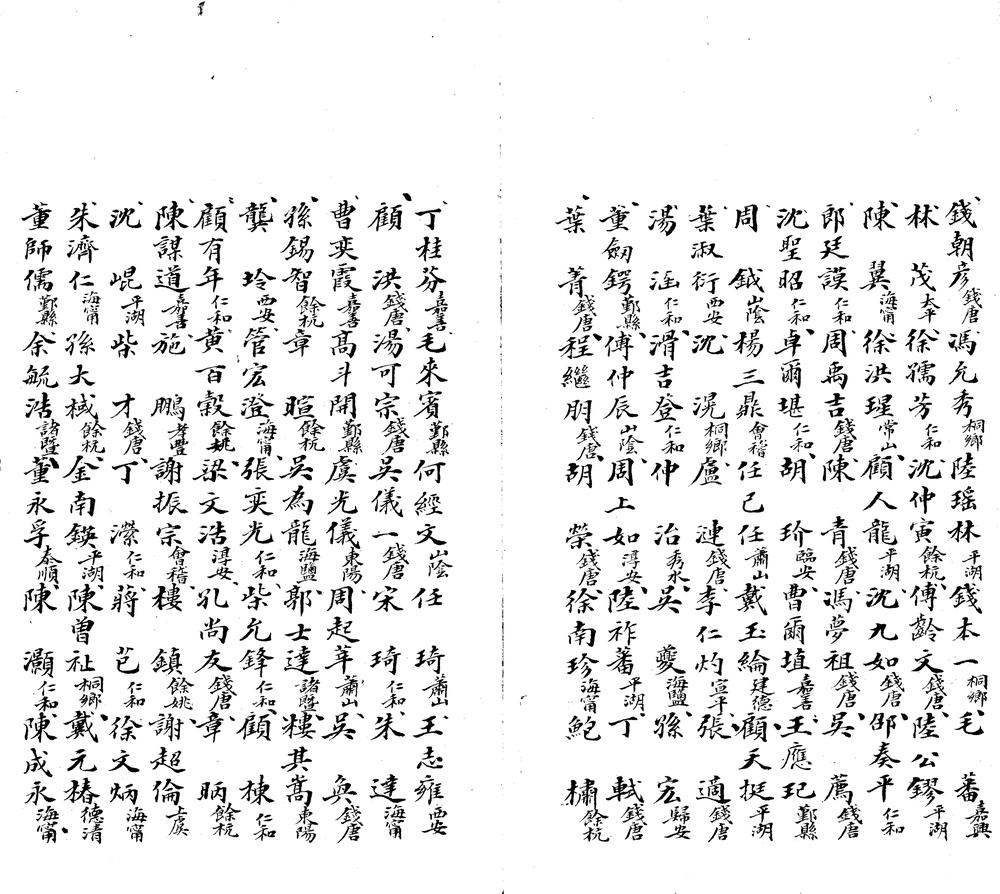 錢朝彦錢唐馮允秀桐鄉陸瑶林平湖錢本一桐鄉毛蕃嘉興
林茂太平徐孺芳仁和沈仲寅餘杭傅齡文錢唐陸公鏐平湖
陳翼海甯徐洪瑆常山顧人龍平湖沈九如錢唐邵奏平仁和
郎廷謨仁和周禹吉錢唐陳青錢唐馮夢祖錢唐吳薦錢唐
沈聖昭仁和卓爾堪仁和胡玠臨安曹爾埴嘉善王應玘鄞縣
周鉞山陰楊三鼎會稽任己任蕭山戴玉綸建德顧天挺平湖
葉淑衍西安沈滉桐鄉盧漣錢唐李仁灼宣平張適錢唐
湯涵仁和滑吉登仁和仲治秀水吳夔海鹽孫宏歸安
董劍鍔鄞縣傅仲辰山陰周上如淳安陸祚蕃平湖丁軾錢唐
葉菁錢唐程繼朋錢唐胡榮錢唐徐南珍海甯鮑櫹餘杭
丁桂芬嘉善毛來賓鄞縣何經文山陰任琦蕭山王志雍西安
顧洪錢唐湯可宗錢唐吳儀一錢唐宋琦仁和朱達海甯
曹奕霞嘉善高斗開鄞縣虞光儀東陽周起莘蕭山吳奐錢唐
孫錫智餘杭章暄餘杭吳為龍海鹽郭士達諸暨樓其嵩東陽
龔坽西安管宏澄海甯張奕光仁和柴允鋒仁和顧棟仁和
顧有年仁和黄百穀餘姚梁文浩淳安孔尚友錢唐章昞餘杭
陳謀道嘉善施鵬孝豐謝振宗會稽樓鎮餘姚謝超倫上虞
沈崐平湖柴才錢唐丁瀠仁和蔣芑仁和徐文炳海甯
朱濟仁海甯孫大棫餘杭金南鍈平湖陳曾祉桐鄉戴元椿德清
董師儒鄞縣余毓浩諸暨董永孚泰順陳灝仁和陳成永海甯